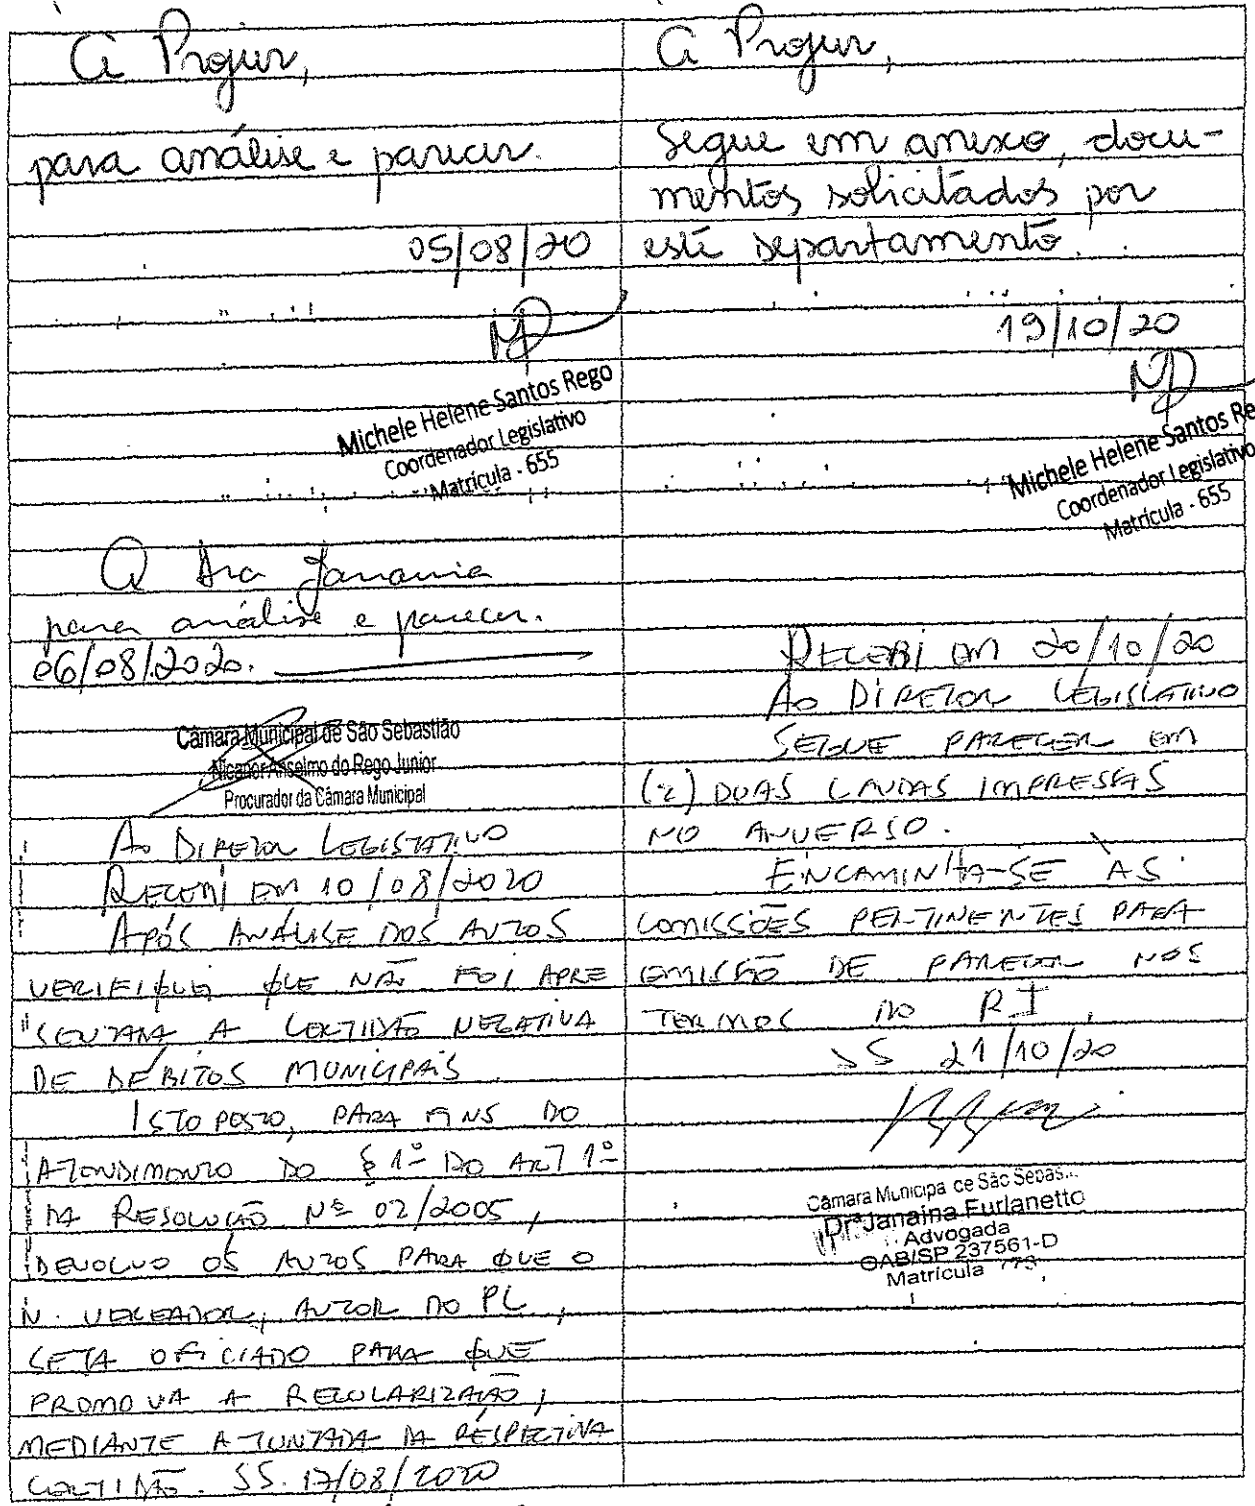 À Projur,
para análise e parecer.
05/08/20
Michele Helene Santos Rego
Coordenador Legislativo
Matrícula - 655
À Dra Janaina
para análise e parecer.
06/08/2020.
Câmara Municipal de São Sebastião
Nicanor Anselmo do Rego Junior
Procurador da Câmara Municipal
Ao Diretor Legislativo
Recebi em 10/08/2020
Após análise dos autos
verifiquei que não foi apre
sentada a certidão negativa
de débitos municipais.
Isto posto, para fins do
atendimento do § 1º do Art 1º
da Resolução Nº 02/2005,
devolvo os autos para que o
N. Vereador, autor do PL,
seja oficiado para que
promova a regularização,
mediante a juntada da respectiva
certidão. SS. 17/08/2020
À Projur,
Segue em anexo, docu-
mentos solicitados por
este departamento.
19/10/20
Michele Helene Santos Re
Coordenador Legislativo
Matrícula - 655
Recebi em 20/10/20
Ao Diretor Legislativo
Segue parecer em
(2) duas laudas impressas
no anverso.
Encaminha-se às
comissões pertinentes para
emissão de parecer nos
termos do RI,
SS 21/10/20
Câmara Municipa de São Sebas...
Drª Janaina Furlanetto
Advogada
OAB/SP 237561-D
Matrícula